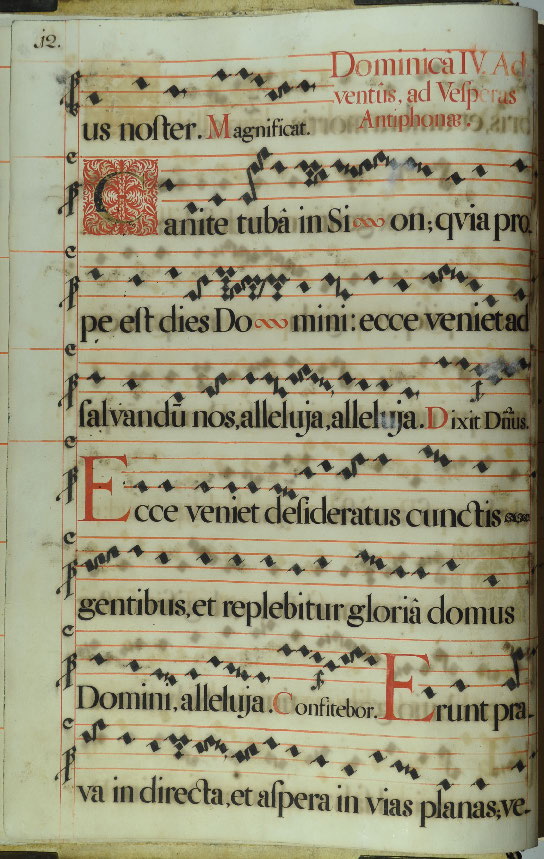 j2.
Dominicâ IV. Ad
ventûs, ad Vesperas
Antiphonæ.
us noſter. Magnificat.
Canite tubâ in Si on; qvia pro-
pe eſt dies Do mini: ecce veniet ad
ſalvandū nos, alleluja, alleluja. Dixit Dñus.
Ecce veniet deſideratus cunctis
gentibus, et replebitur gloriâ domus
Domini, alleluja. Confitebor. Erunt pra-
va in directa, et aſpera in vias planas; ve-